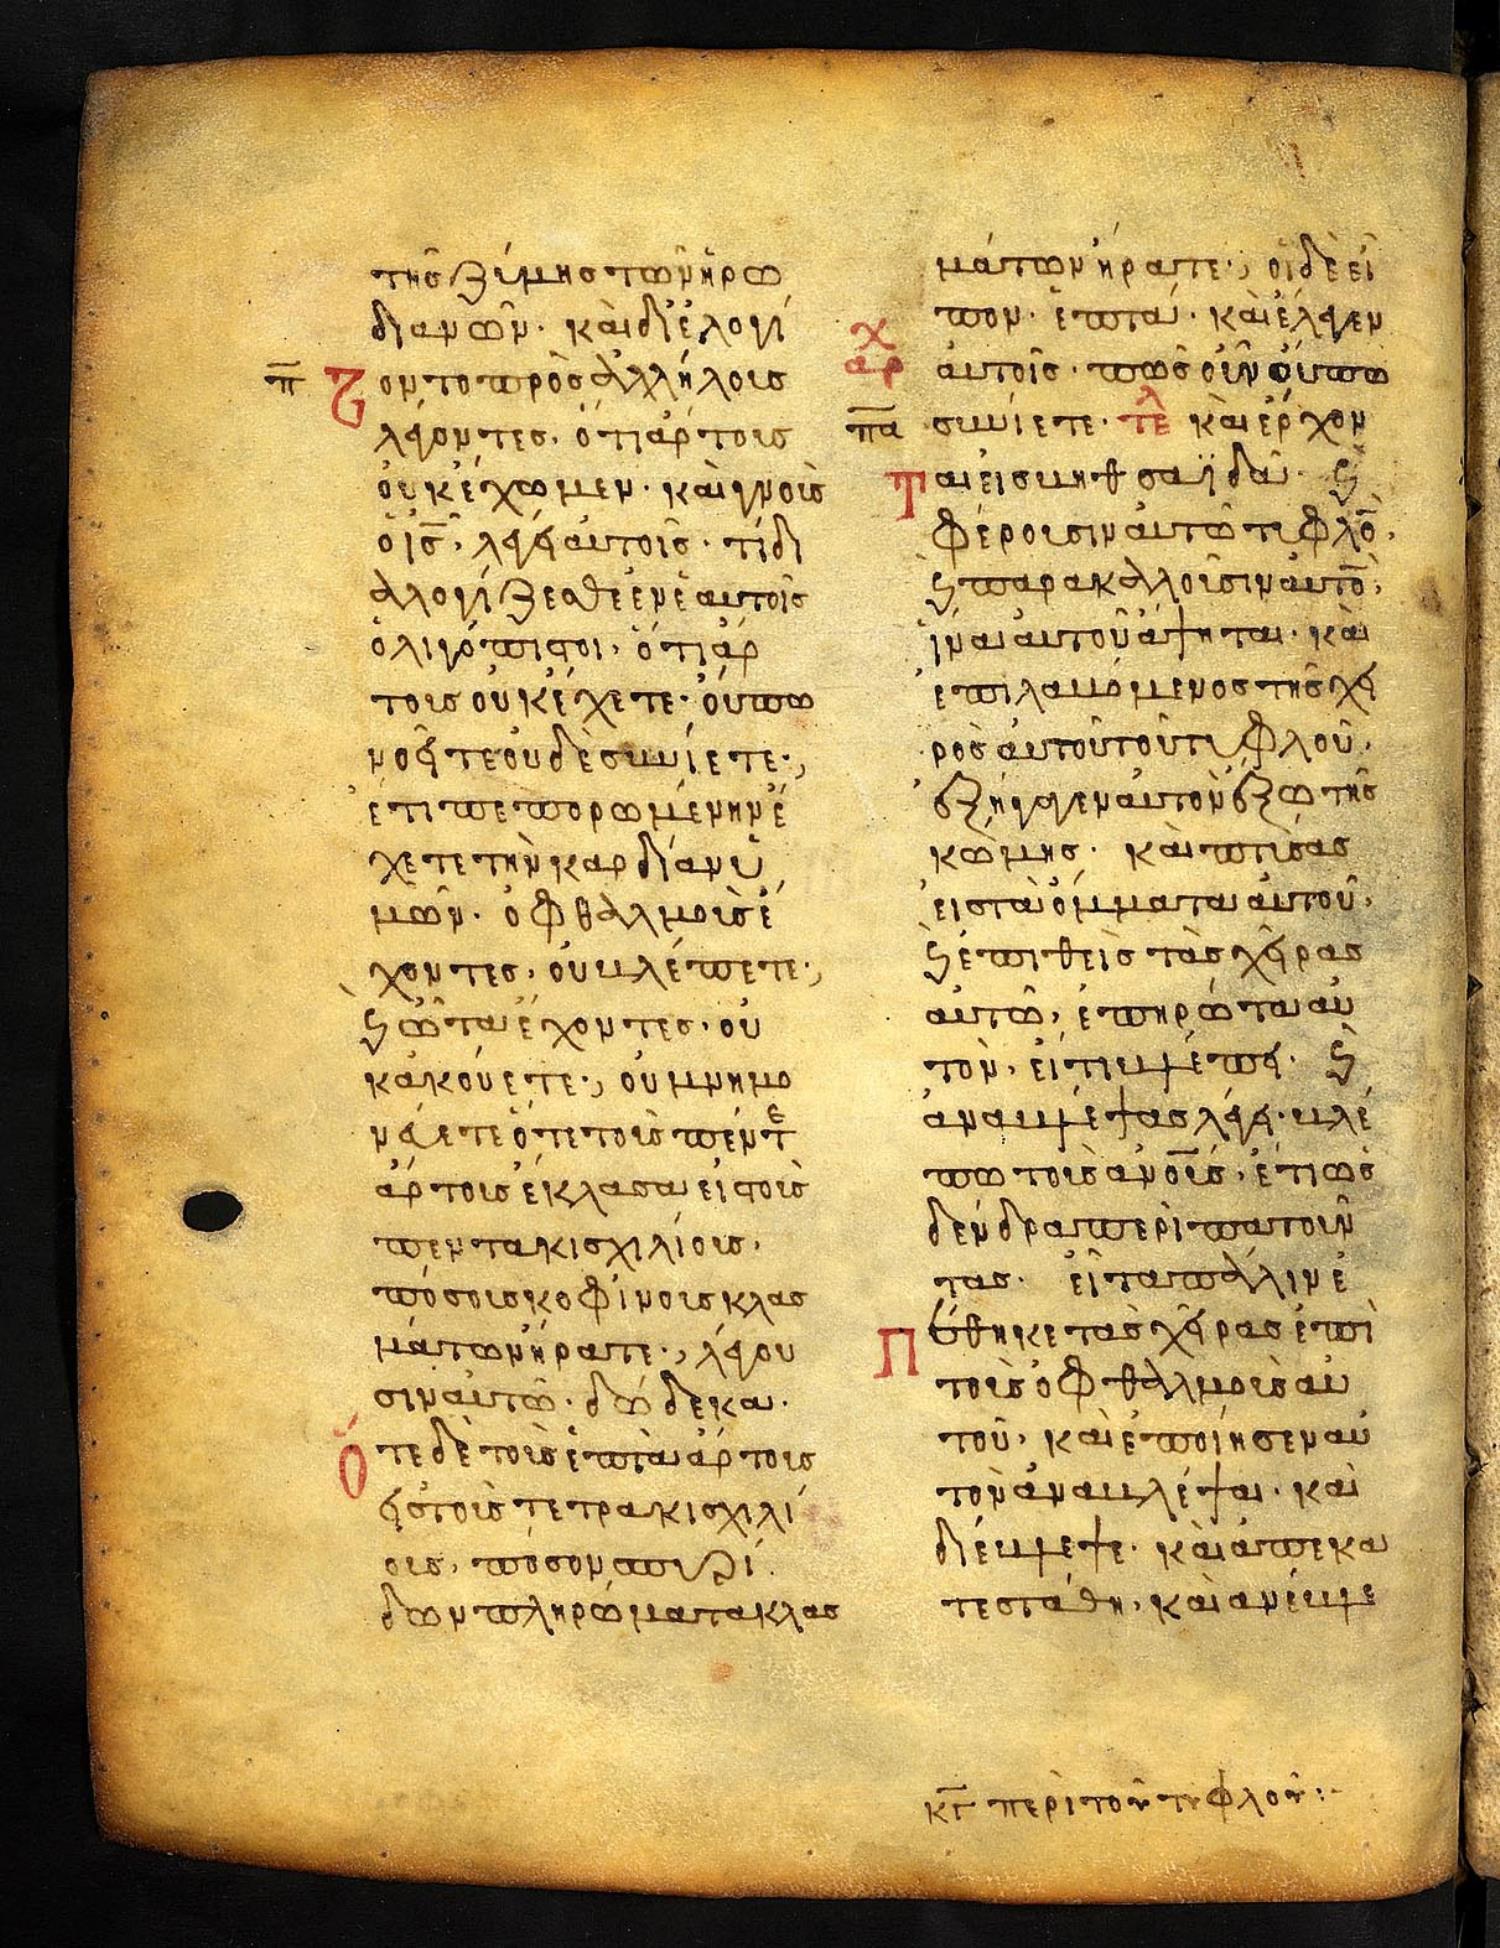 της ζύμης των ηρω
διανῶν· καὶ διελογί
π̅
Ζ ον το πρὸς ἀλλήλους
λέγοντες· ὅτι ἄρτους
οὐκ ἔχωμεν· καὶ γνοὺς
ὁ ι̅ς̅, λέγει αὐτοῖς· τί δι
αλογίζεσθε ἐν ἑαυτοῖς
ὀλιγόπιστοι, ὅτι ἄρ
τους οὐκ ἔχετε· οὔπω
νοεῖτε οὐδὲ συνίετε·,
ἔτι πεπορωμένην ἔ
χετε τὴν καρδίαν ὑ
μῶν· ὀφθαλμοὺς ἔ
χοντες, οὐ βλέπετε·,
ϗ ὦτα ἔχοντες· οὐ
κ ἀκούετε·, οὐ μνημο
νεύετε ὅτε τοὺς πέντε
ἄρτους ἔκλασα εἰς τοὺς
πεντακισχιλίους,
πόσους κοφίνους κλασ
μάτων ἤρατε·, λέγου
σιν αὐτῶ· δώδεκα·
Ὁ τε δὲ τοὺς ἑπτὰ ἄρτους
εἰς τοὺς τετρακισχιλί
ους, πόσον σπυρί
δων πληρώματα κλασ
μάτων ἤρατε·, οἱ δὲ εἶ
πον· ἑπτά· καὶ ἔλεγεν
χ
αρ
αὐτοῖς· πῶς οὖν οὔπω
π̅α̅
συνίετε· τελ καὶ ἔρχον
Τ αι εἰς βηθσαϊδάν· ϗ
φέρουσιν αὐτῶ τυφλὸ̅,
ϗ παρακαλοῦσιν αὐτὸ̅,
ἵνα αὐτοῦ ἅψηται· καὶ
ἐπιλαβόμενος τῆς χει
ρὸς αὐτοῦ τοῦ τυφλοῦ,
ἐξήγαγεν αὐτὸν ἔξω τῆς
κώμης· καὶ πτύσας
εἰς τὰ ὄμματα αὐτοῦ,
ϗ ἐπιθεὶς τὰς χεῖρας
αὐτῶ, ἐπηρώτα αὐ
τὸν, εἴ τι βλέπει· ϗ
ἀναβλέψας λέγει· βλέ
πω τοὺς α̅ν̅ο̅υ̅ς̅, ἔτι ὡς
δένδρα περιπατοῦν
τας· εἶτα πάλιν ἐ
Π έθηκε τὰς χεῖρας ἐπὶ
τοὺς ὀφθαλμοὺς αὐ
τοῦ, καὶ ἐποίησεν αὐ
τὸν ἀναβλέψαι· καὶ
διέβλεψε· καὶ ἀπεκα
τεστάθη, καὶ ἀνέβλε
κ̅γ̅ περὶ τοῦ τυφλοῦ:-